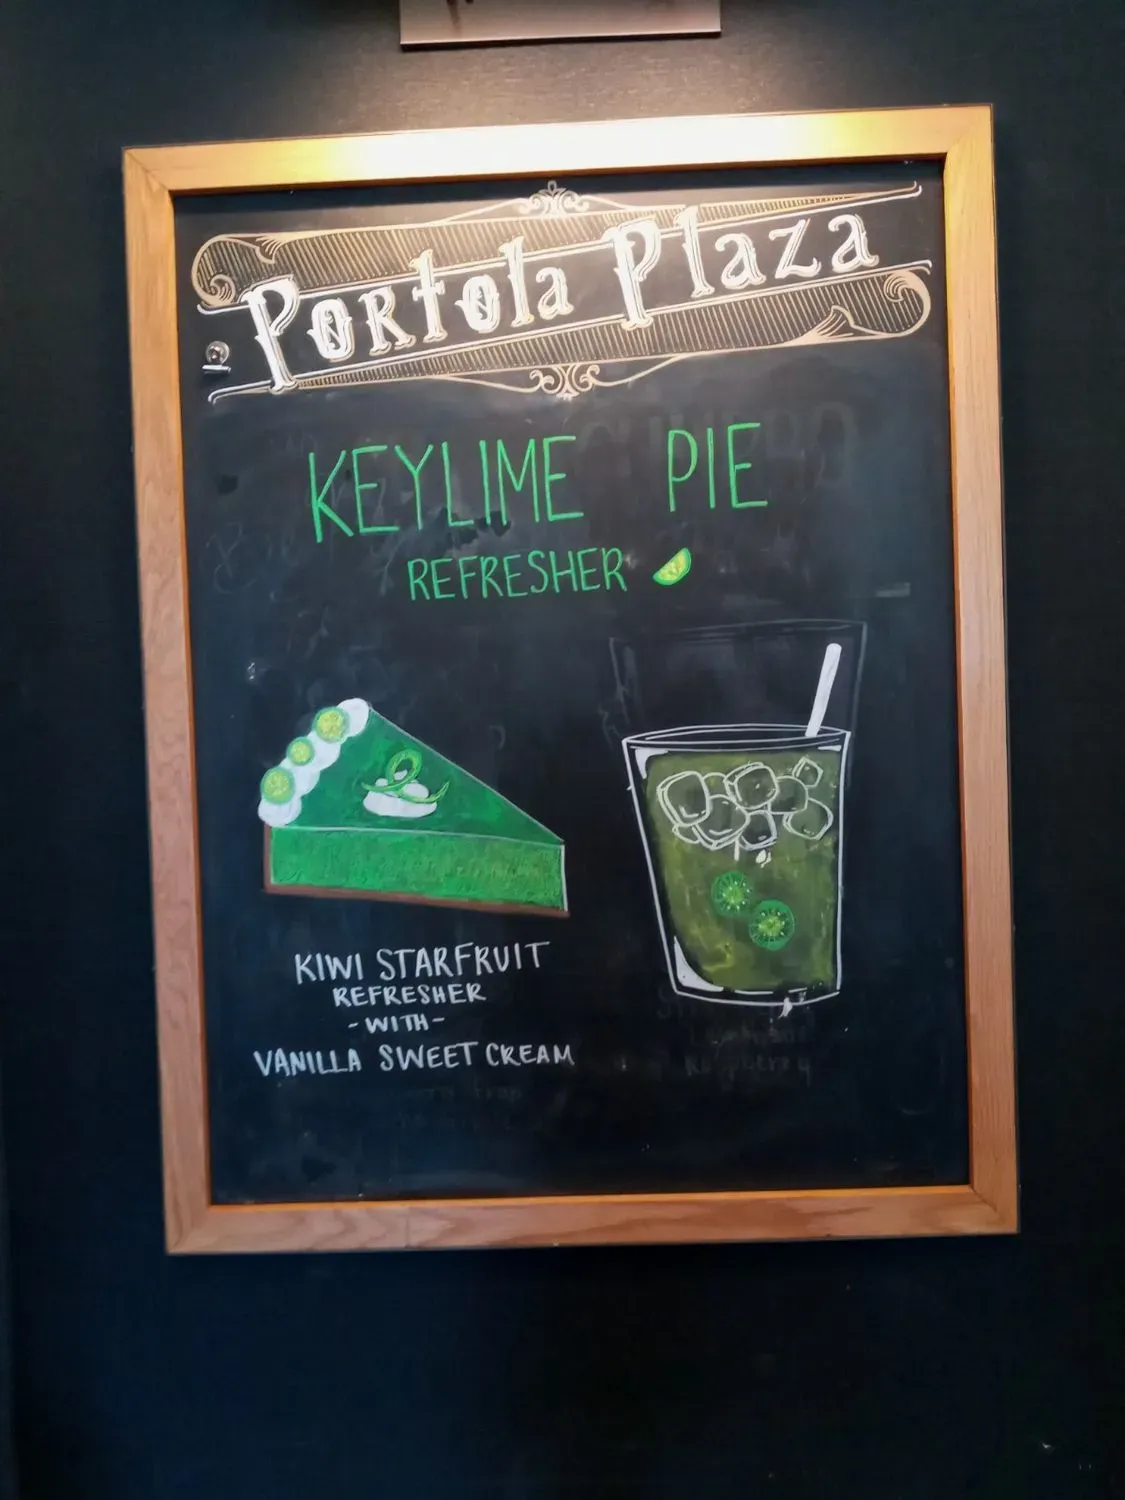 Portola Plaza
KEYLIME PIE
REFRESHER
KIWI STARFRUIT
REFRESHER
-WITH-
VANILLA SWEET CREAM